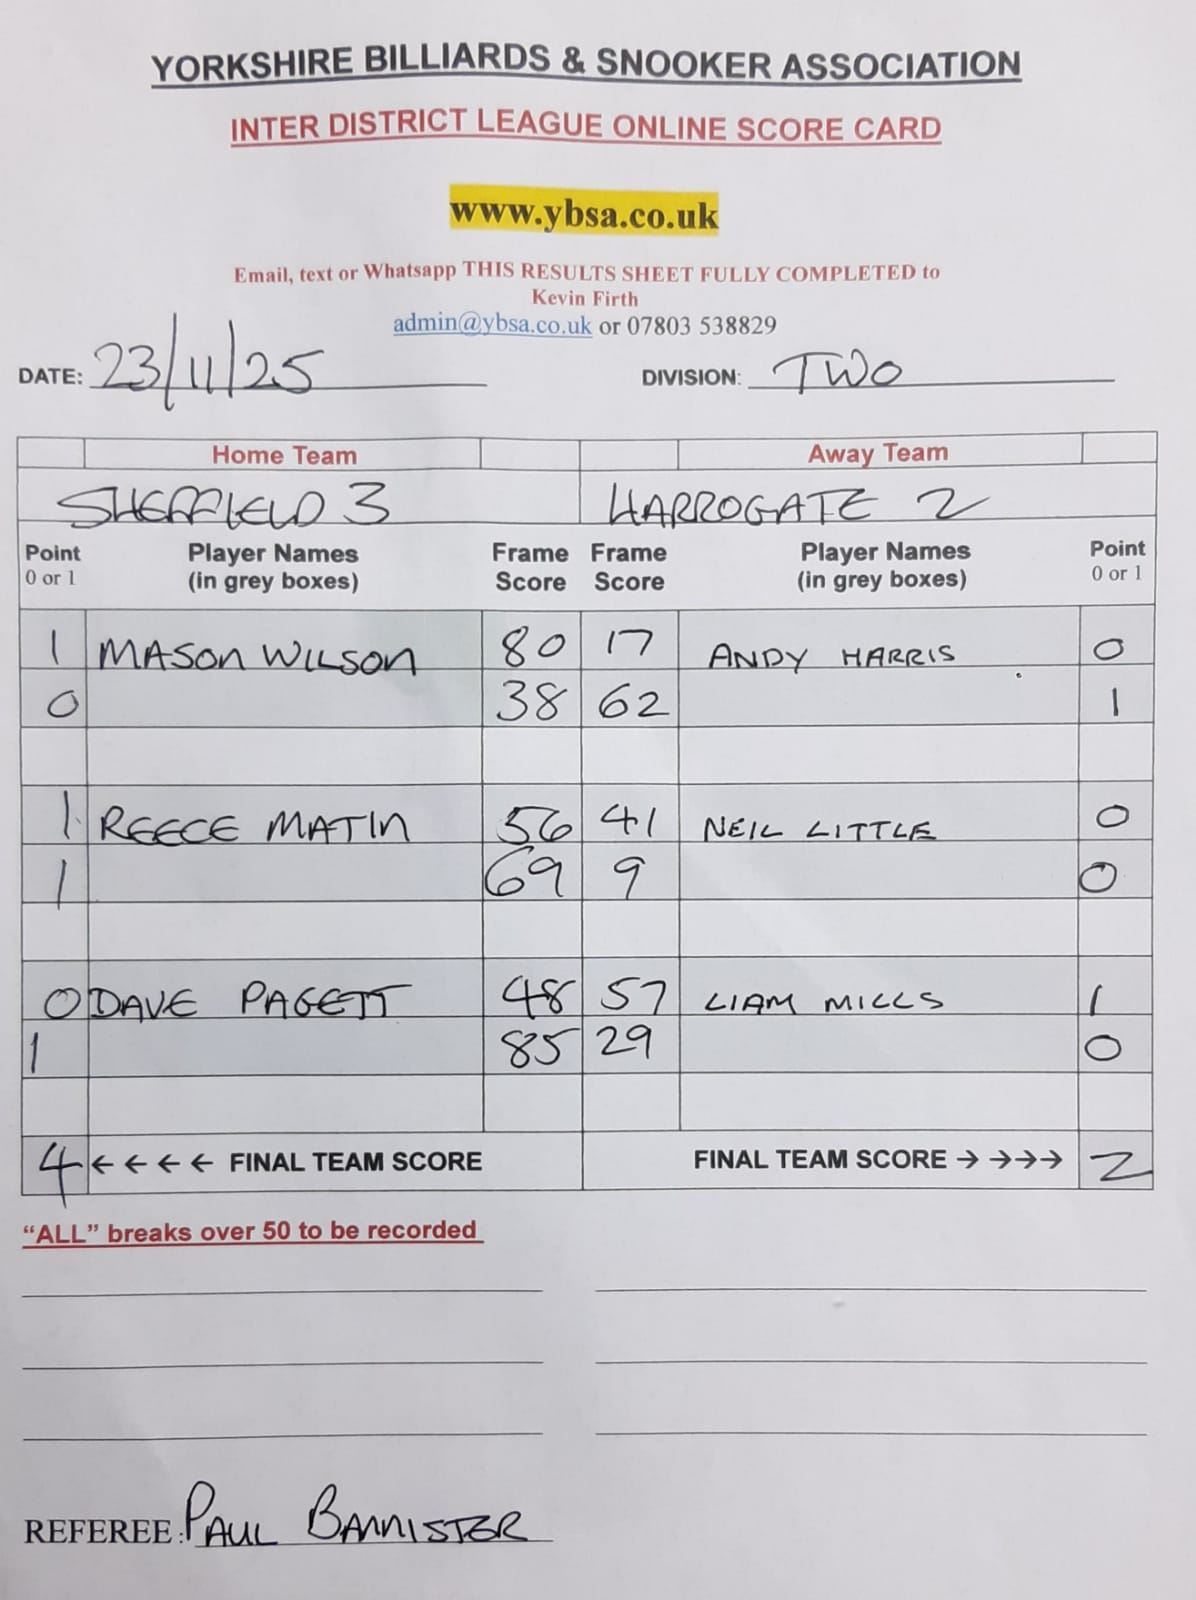 YORKSHIRE BILLIARDS & SNOOKER ASSOCIATION
INTER DISTRICT LEAGUE ONLINE SCORE CARD
www.ybsa.co.uk
Email, text or Whatsapp THIS RESULTS SHEET FULLY COMPLETED to
Kevin Firth
admin@ybsa.co.uk or 07803 538829
DATE: 23/11/25 DIVISION: TWO
Home Team Away Team
SHEFFIELD 3 HARROGATE 2
Point Player Names Frame Frame Player Names Point
0 or 1 (in grey boxes) Score Score (in grey boxes) 0 or 1
1 MASON WILSON 80 17 ANDY HARRIS 0
0 38 62 1
1 REECE MATIN 56 41 NEIL LITTLE 0
1 69 9 0
0 DAVE PAGETT 48 57 LIAM MILLS 1
1 85 29 0
4 ← ← ← ← FINAL TEAM SCORE FINAL TEAM SCORE → →→→ 2
“ALL” breaks over 50 to be recorded
REFEREE: PAUL BANNISTER